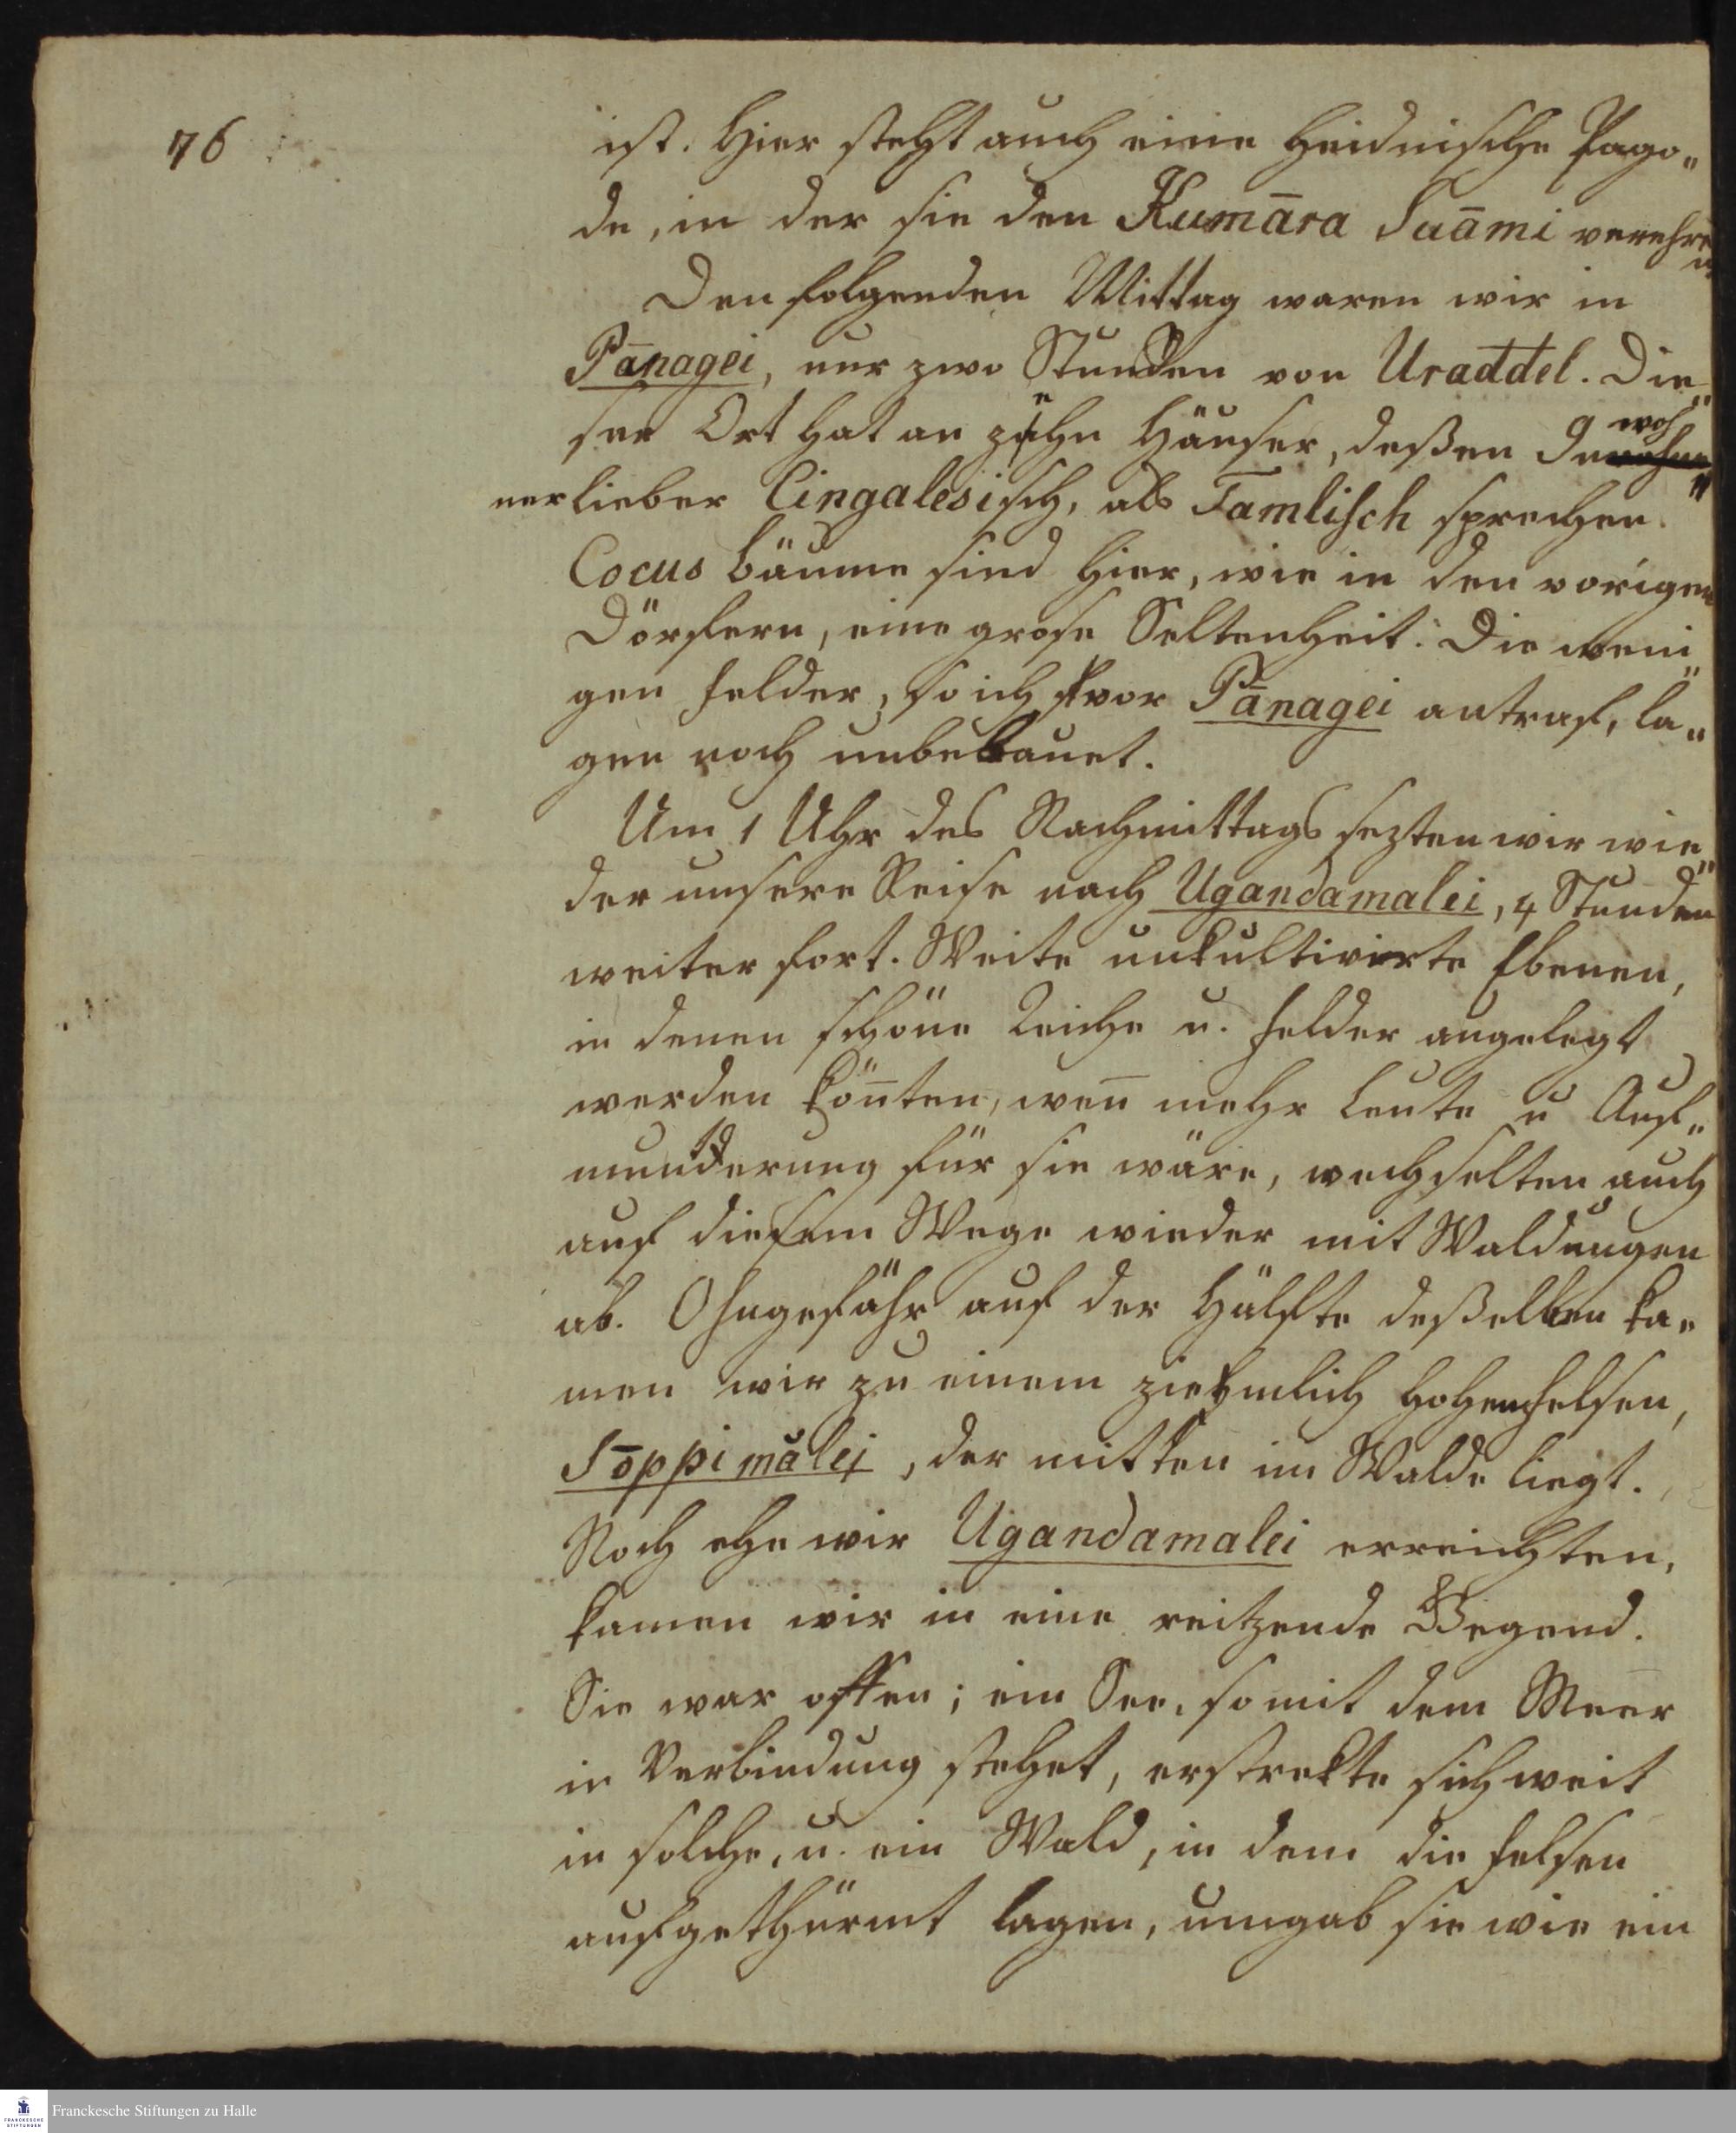 76
ist. Hier steht auch eine heidnische Pago„
de, in der sie den Kumāra Suāmi verehren
Den folgenden Mittag waren wir in
Pānagei, nur zwo Stunden von Uraddel. Die„
ser Ort hat an zehn Häuser, deßen Inwoh„
ner lieber Cingalesisch, als Tamlisch sprechen.
Cocus bäume sind hier, wie in den vorigen
Dörfern, eine grose Seltenheit. Die weni„
gen Felder, so ich vor Pānagei antraf, la„
gen noch unbebauet.
Um 1 Uhr des Nachmittags sezten wir wie„
der unsere Reise nach Ugandamalei, 4 Stunden
weiter fort. Weite unkultivirte Ebenen,
in denen schöne Teiche u. Felder angelegt
werden kön̄ten, wen̄ mehr Leute u Auf„
munterung für sie wäre, wechselten auch
auf diesem Wege wieder mit Waldungen
ab. Ohngefähr auf der Hälfte deßelben ka„
men wir zu einem ziehmlich hohen Felsen,
Sōppimalei, der mitten im Walde liegt.
Noch ehe wir Ugandamalei erreichten,
kamen wir in eine reitzende Gegend.
Sie war offen; ein See, so mit dem Meer
in Verbindung stehet, erstrekte sich weit
in solche, u. ein Wald, in dem die Felsen
aufgethürmt lagen, umgab sie wie ein
Franckesche Stiftungen zu Halle